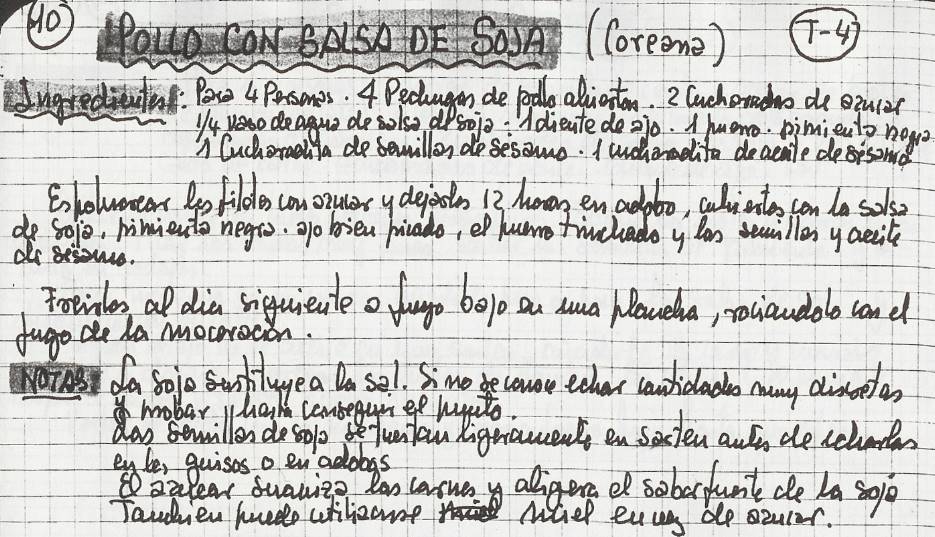 40 POLLO CON SALSA DE SOJA (Coreana) T-4
Ingredientes: Para 4 Personas. 4 Pechugas de pollo abiertas. 2 Cucharadas de azucar
1/4 vaso de agua de salsa de soja. 1 diente de ajo. 1 puerro. pimienta negra
1 Cucharadita de semillas de sésamo. 1 cucharadita de aceite de sésamo
Espolvorear los filetes con azucar y dejarlos 12 horas en adobo, cubiertos con la salsa
de soja, pimienta negra. ajo bien picado, el puerro trinchado y las semillas y aceite
de sésamo.
Freirlos al dia siguiente a fuego bajo en una plancha, rociandolo con el
jugo de la maceración.
NOTAS La soja sustituye a la sal. Si no se conoce echar cantidades muy discretas
y probar hasta conseguir el punto.
Las semillas de soja se tuestan ligeramente en sartén antes de echarlas
en los guisos o en adobos
El azucar suaviza las carnes y aligera el sabor fuerte de la soja
Tambien puede utilizarse miel en vez de azucar.